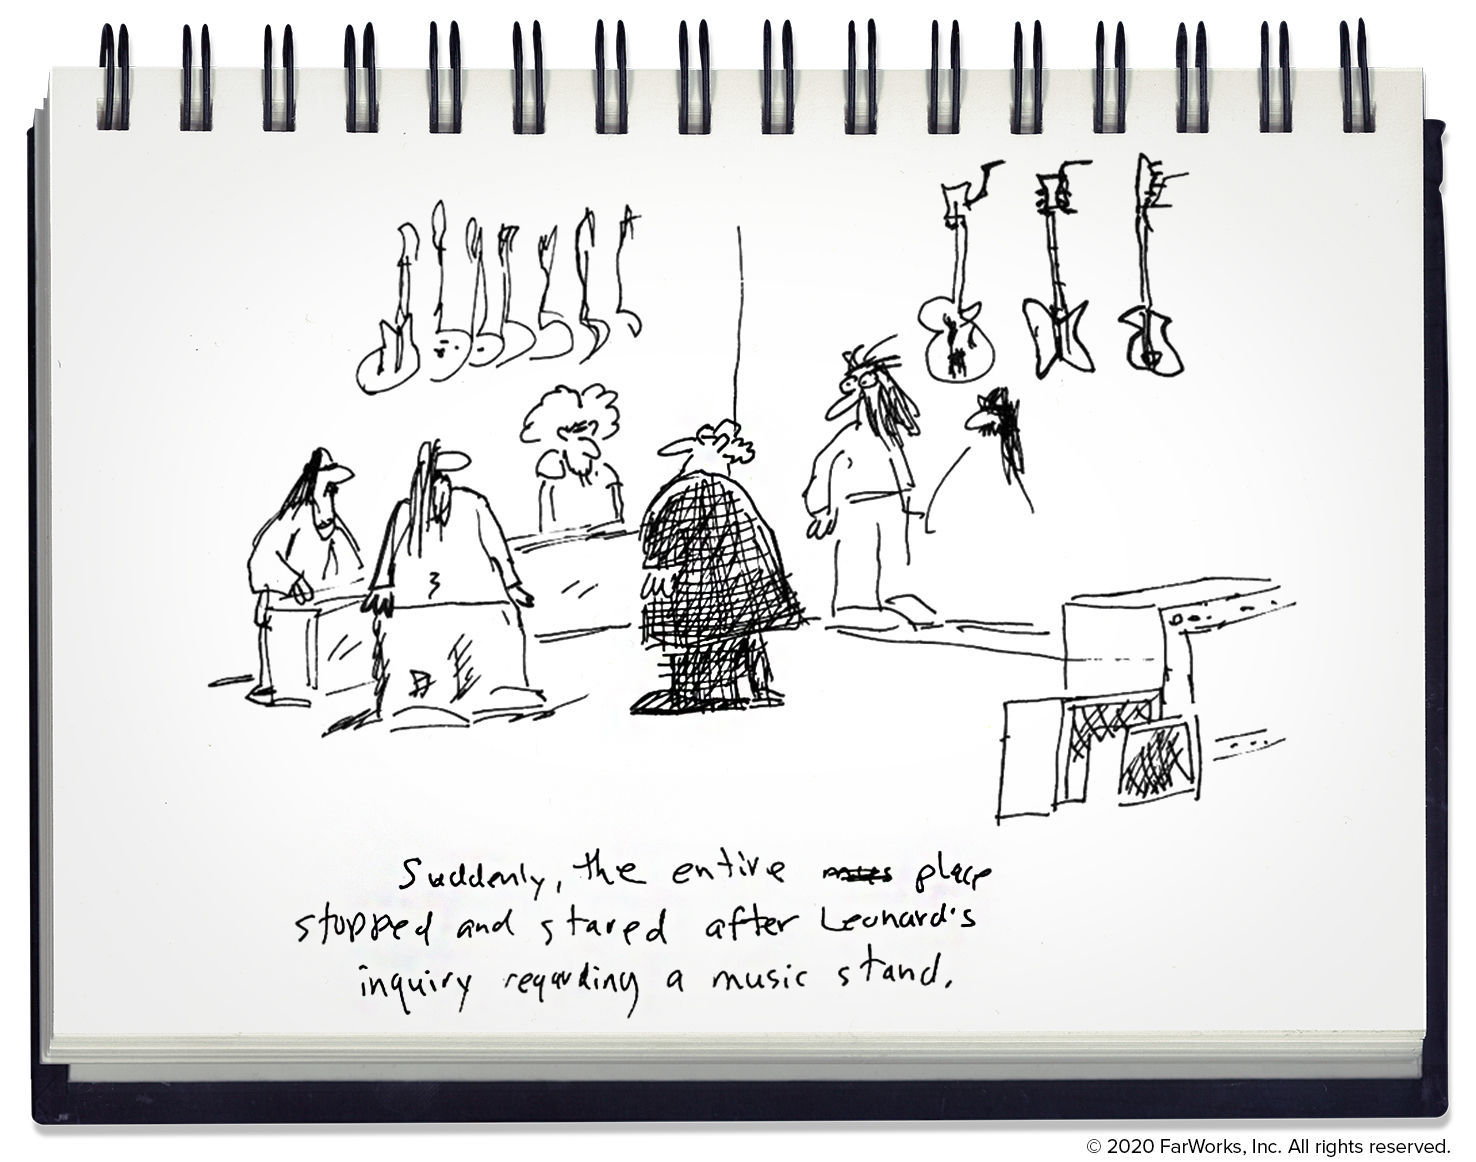 Suddenly, the entire place
stopped and stared after Leonard's
inquiry regarding a music stand.
© 2020 FarWorks, Inc. All rights reserved.